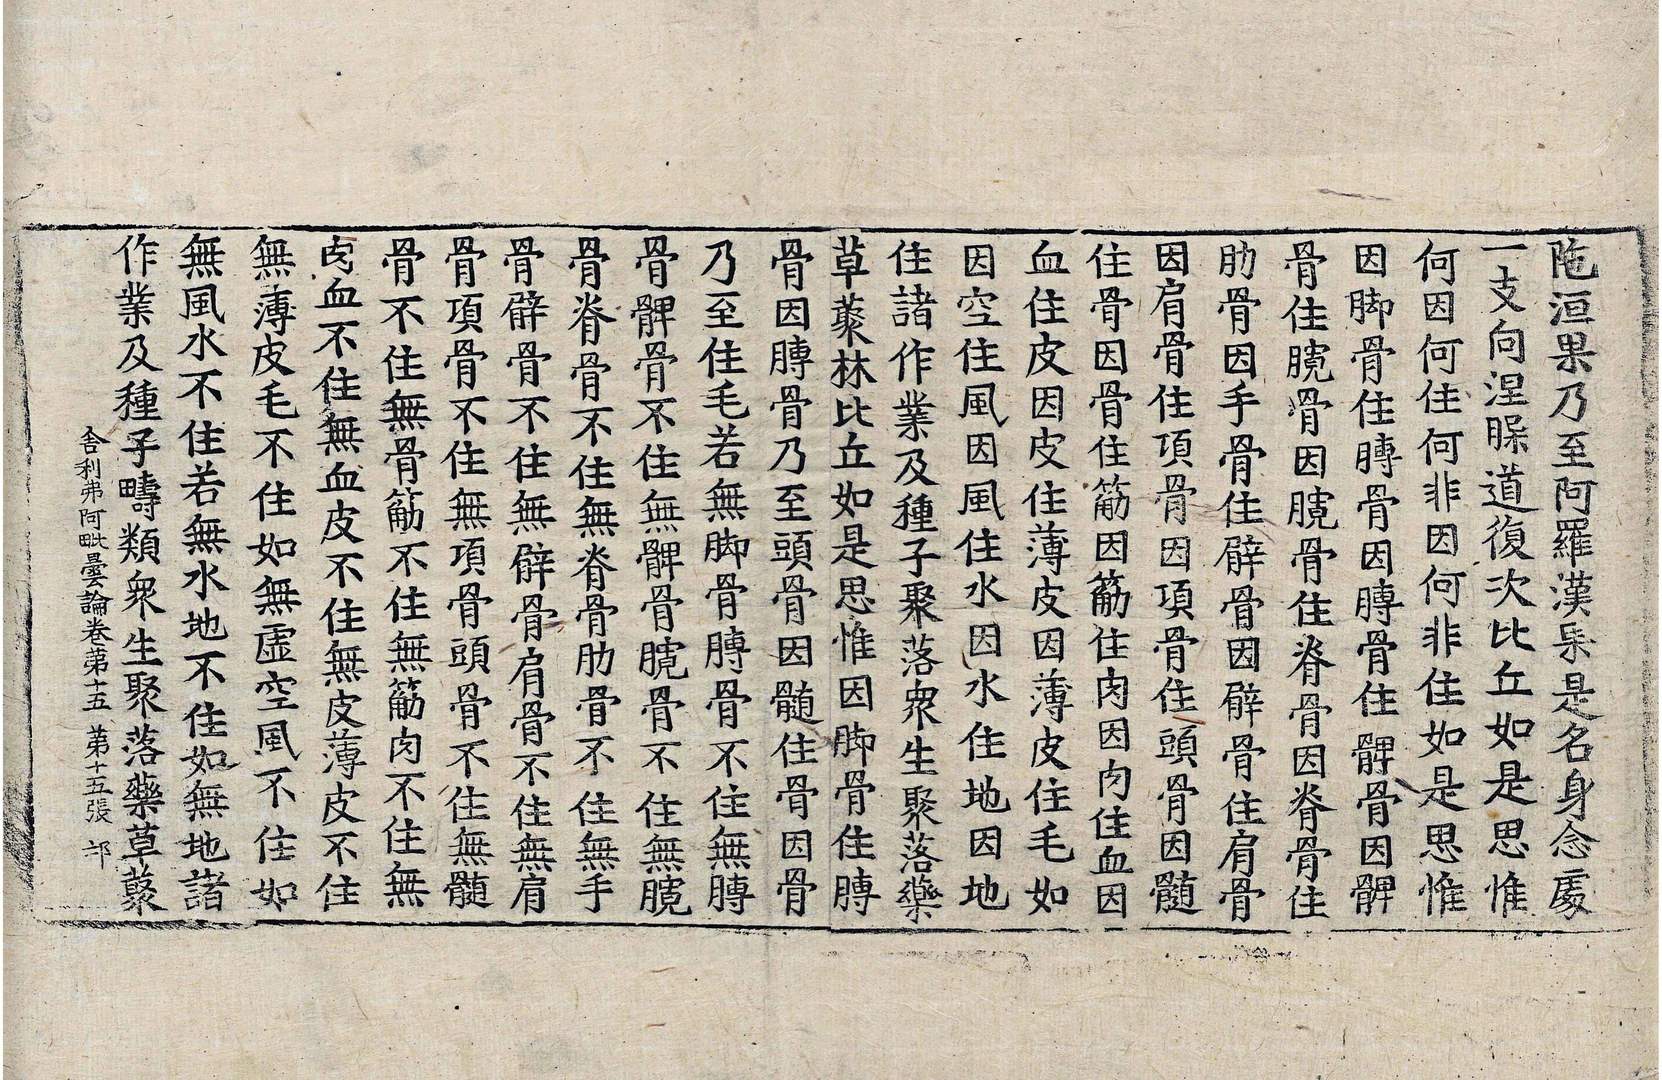 陁洹果乃至阿羅漢果是名身念處
一支向涅槃道復次比丘如是思惟
何因何住何非因何非住如是思惟
因脚骨住膞骨因膞骨住髀骨因髀
骨住臗骨因臗骨住脊骨因脊骨住
肋骨因手骨住臂骨因臂骨住肩骨
因肩骨住項骨因項骨住頭骨因髓
住骨因骨住筋因筋住肉因肉住血因
血住皮因皮住薄皮因薄皮住毛如
因空住風因風住水因水住地因地
住諸作業及種子聚落衆生聚落藥
草藂林比丘如是思惟因脚骨住膞
骨因膞骨乃至頭骨因髓住骨因骨
乃至住毛若無脚骨膞骨不住無膞
骨髀骨不住無髀骨臗骨不住無臗
骨脊骨不住無脊骨肋骨不住無手
骨臂骨不住無臂骨肩骨不住無肩
骨項骨不住無項骨頭骨不住無髓
骨不住無骨筋不住無筋肉不住無
肉血不住無血皮不住無皮薄皮不住
無薄皮毛不住如無虛空風不住如
無風水不住若無水地不住如無地諸
作業及種子疇類衆生聚落藥草藂
舍利弗阿毗曇論卷第十五 第十五張